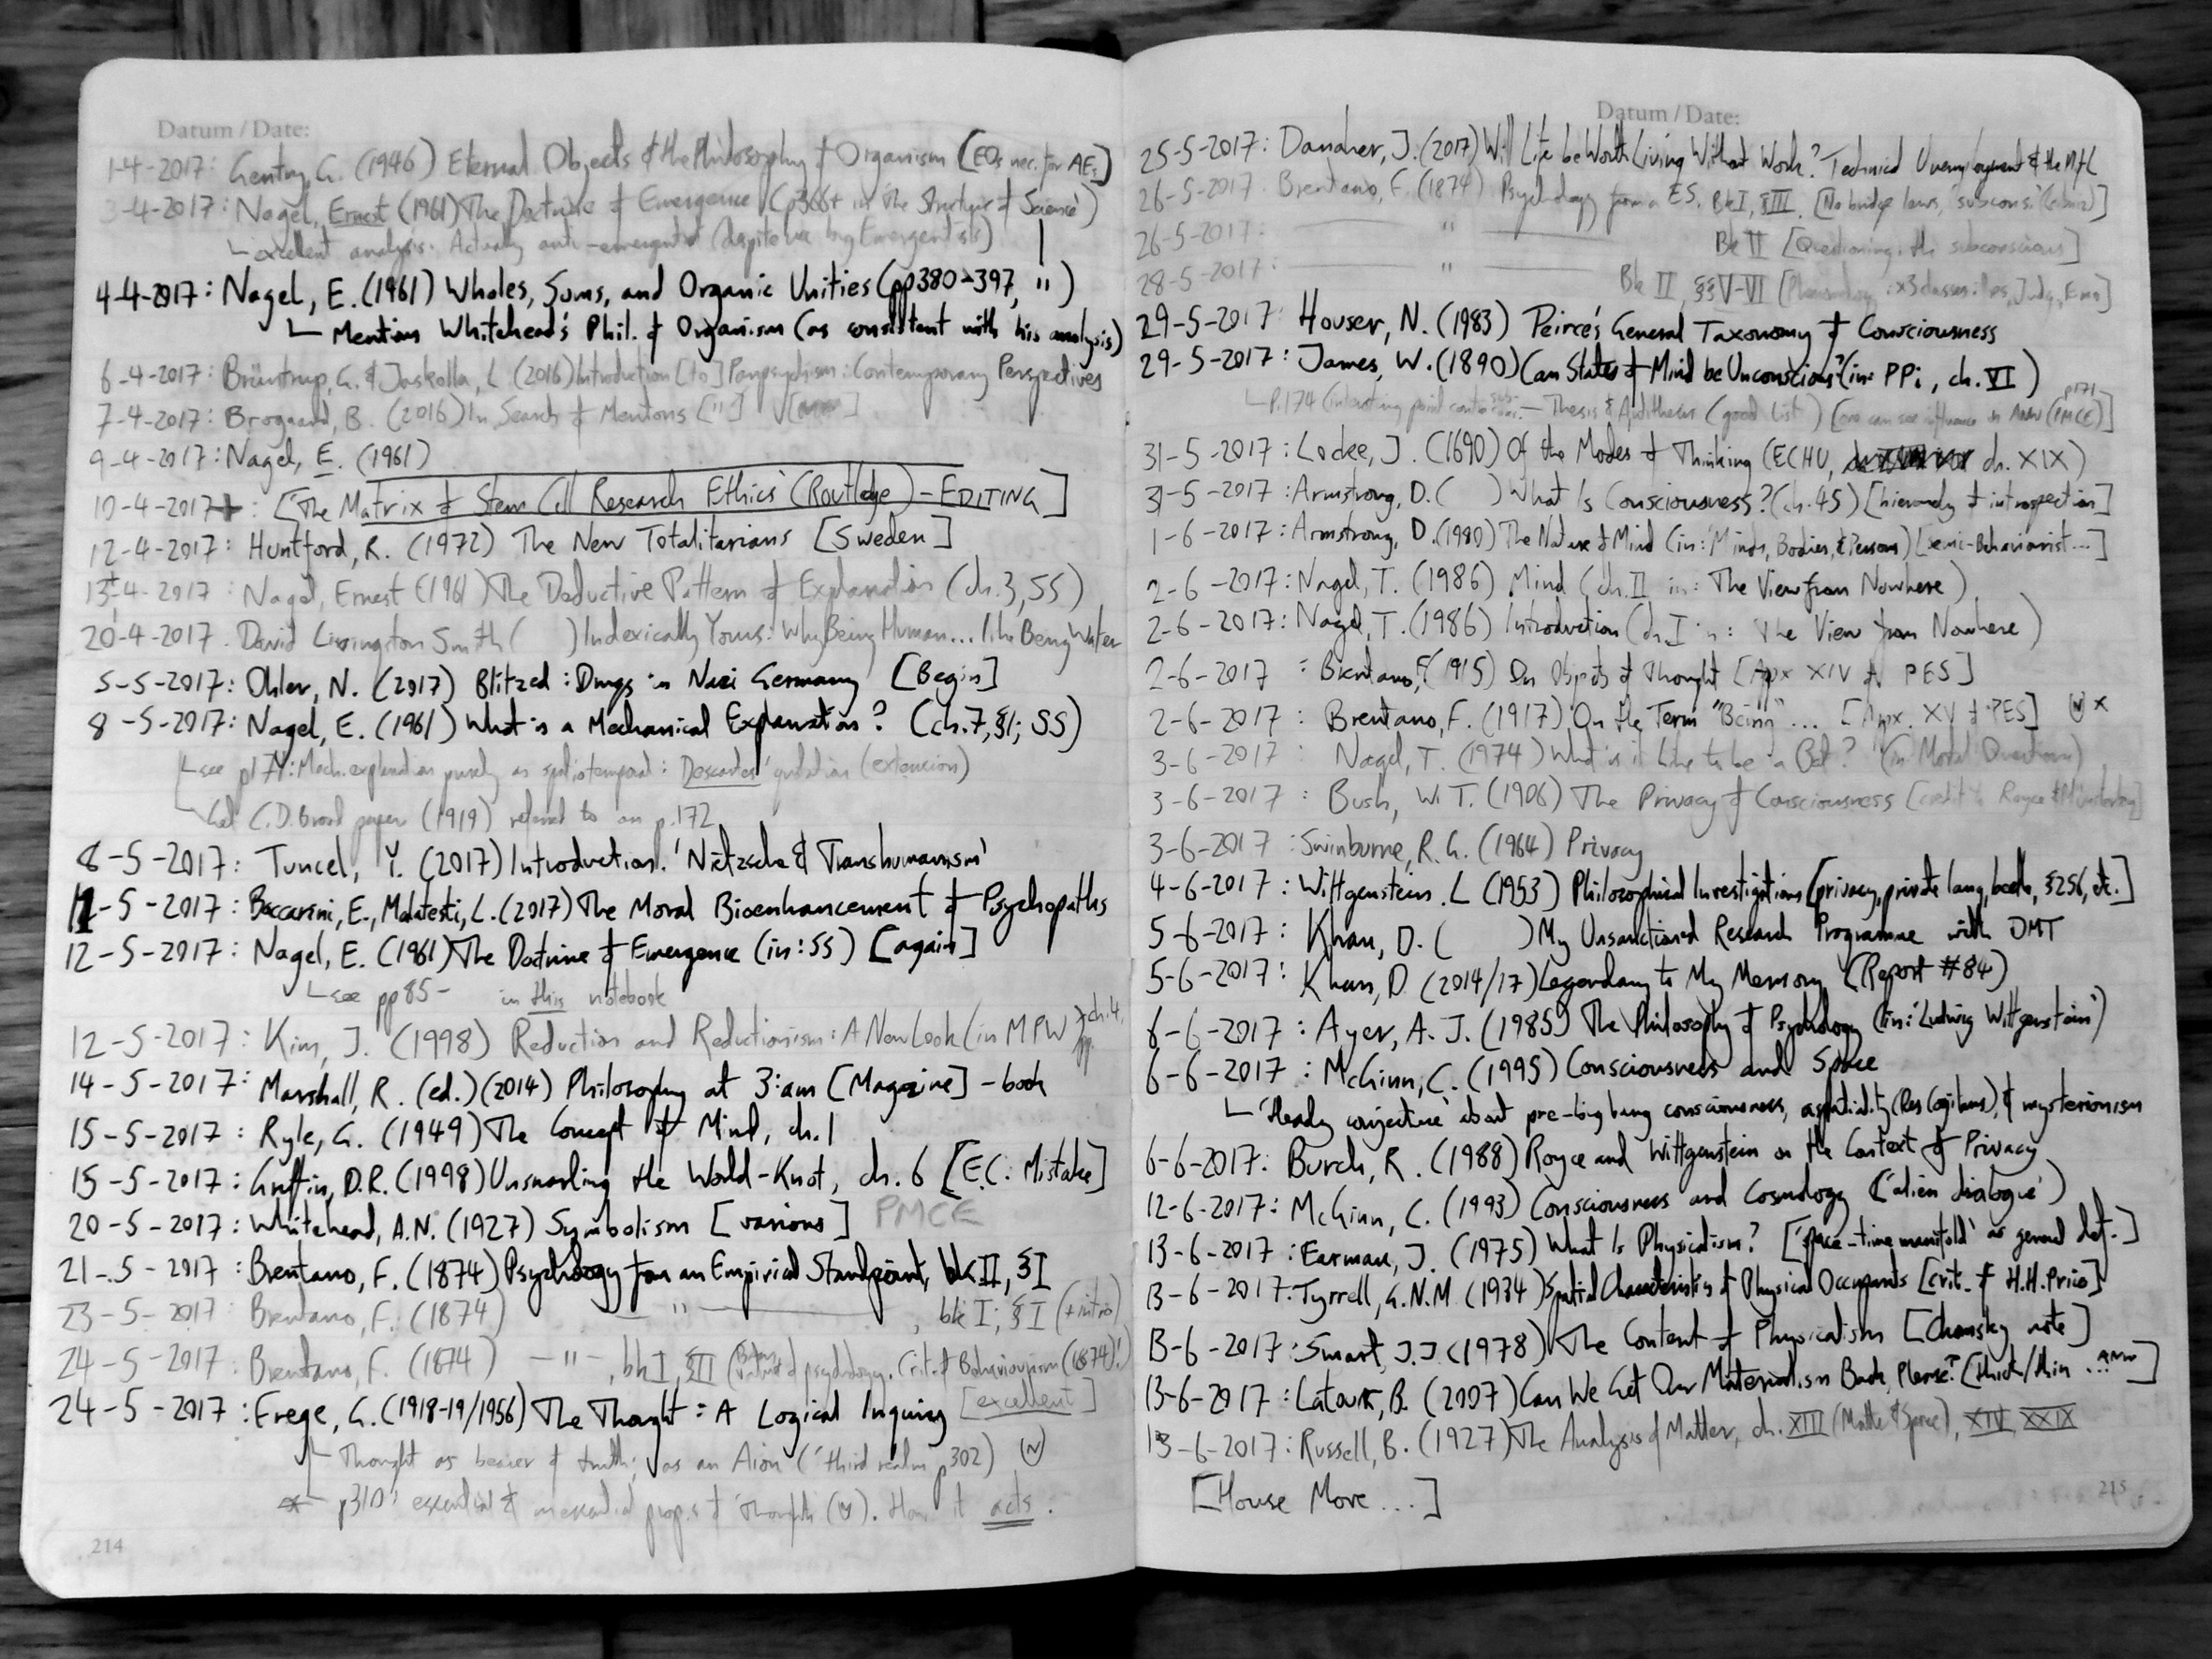 Datum / Date:
1-4-2017: Gentry, G. (1946) Eternal Objects & the Philosophy of Organism [EOs nec. for AEs]
3-4-2017: Nagel, Ernest (1961) The Doctrine of Emergence (p366+ in 'The Structure of Science')
excellent analysis. Actually anti-emergentist (despite
4-4-2017: Nagel, E. (1961) Wholes, Sums, and Organic Unities (pp380-397, ")
Mentions Whitehead's Phil. of Organism (as consistent with his analysis)
6-4-2017: Brüntrup, G. & Jaskolla, L. (2016) Introduction [to] Panpsychism: Contemporary Perspectives
7-4-2017: Brogaard, B. (2016) In Search of Mentons ["]
9-4-2017: Nagel, E. (1961)
10-4-2017+: ['The Matrix of Stem Cell Research Ethics' (Routledge) - EDITING]
12-4-2017: Huntford, R. (1972) The New Totalitarians [Sweden]
13-4-2017: Nagel, Ernest (1961) The Deductive Pattern of Explanation (ch.3, SS)
20-4-2017. David Livingston Smith ( ) Indexically Yours: Why Being Human... like Being Water
5-5-2017: Ohler, N. (2017) Blitzed: Drugs in Nazi Germany [Begin]
8-5-2017: Nagel, E. (1961) What is a Mechanical Explanation? (ch.7, §1; SS)
see p174: Mech. explanation purely as spatiotemporal: Descartes' (extension)
Get C.D. Broad paper (1919) referred to on p.172
8-5-2017: Tuncel, Y. (2017) Introduction. 'Nietzsche & Transhumanism'
12-5-2017: Baccarini, E., Malatesti, L. (2017) The Moral Bioenhancement of Psychopaths
12-5-2017: Nagel, E. (1961) The Doctrine of Emergence (in: SS) [again]
see pp85- in this notebook
12-5-2017: Kim, J. (1998) Reduction and Reductionism: A New Look (in MPW ch.4,
14-5-2017: Marshall, R. (ed.) (2014) Philosophy at 3:am [Magazine] - book
15-5-2017: Ryle, G. (1949) The Concept of Mind, ch.1
15-5-2017: Griffin, D.R. (1998) Unsnarling the World-Knot, ch. 6 [E.C: Mistake]
20-5-2017: Whitehead, A.N. (1927) Symbolism [various] PMCE
21-5-2017: Brentano, F. (1874) Psychology from an Empirical Standpoint, bk II, §I
23-5-2017: Brentano, F. (1874) " , bk I, §I (+intro)
24-5-2017: Brentano, F. (1874) -"- , bk I, §II ( psychology. Crit. of Behaviourism (1874)!)
24-5-2017: Frege, G. (1918-19/1956) The Thought: A Logical Inquiry [excellent]
Thought as bearer of truth; as an Aion ('third realm' p302)
* p310: essential & inessential props of Thought. How it acts.
214
Datum / Date:
25-5-2017: Danaher, J. (2017) Will Life be Worth Living Without Work? Technical Unemployment & the MfL
26-5-2017. Brentano, F. (1874) Psychology from a ES, Bk I, §III. [No bridge laws,
26-5-2017: " Bk II [Questioning the subconscious]
28-5-2017: " Bk II, §§V-VI
29-5-2017: Houser, N. (1983) Peirce's General Taxonomy of Consciousness
29-5-2017: James, W. (1890) Can States of Mind be Unconscious? (in: PPi, ch. VI)
P.174 (interesting point - Thesis & Antithesis (good list) [one can see influence on ANW (PMCE)] p171
31-5-2017: Locke, J. (1690) Of the Modes of Thinking (ECHU, ch. XIX)
31-5-2017: Armstrong, D. ( ) What Is Consciousness? (ch.45) [hierarchy of introspection]
1-6-2017: Armstrong, D. (1980) The Nature of Mind (in: 'Minds, Bodies, & Persons) [semi-Behaviorist...]
2-6-2017: Nagel, T. (1986) Mind (ch.II in: The View from Nowhere)
2-6-2017: Nagel, T. (1986) Introduction (ch.I in: The View from Nowhere)
2-6-2017: Brentano, F. (1915) On Objects of Thought [Apx XIV of PES]
2-6-2017: Brentano, F. (1917) On the Term "Being"... [Apx. XV of PES]
3-6-2017: Nagel, T. (1974) What is it Like to be a Bat? (in Mortal Questions)
3-6-2017: Bush, W.T. (1906) The Privacy of Consciousness [credit to Royce & Münsterberg]
3-6-2017: Swinburne, R.G. (1964) Privacy
4-6-2017: Wittgenstein. L (1953) Philosophical Investigations [privacy, private lang, beetle, §256, etc.]
5-6-2017: Khan, D. ( ) My Unsanctioned Research Programme with DMT
5-6-2017: Khan, D. (2014/17) Legendary to My Memory (Report #84)
6-6-2017: Ayer, A.J. (1985) The Philosophy of Psychology (in: 'Ludwig Wittgenstein')
6-6-2017: McGinn, C. (1995) Consciousness and Space
'Heady conjecture' about pre-big bang consciousness, aspatiality (Res Cogitans), & mysterionism
6-6-2017: Burch, R. (1988) Royce and Wittgenstein on the Context of Privacy
12-6-2017: McGinn, C. (1993) Consciousness and Cosmology ('alien dialogue')
13-6-2017: Earman, J. (1975) What Is Physicalism? ['space-time manifold' as general def.]
13-6-2017: Tyrrell, G.N.M. (1934) Spatial Characteristics of Physical Occupants [crit. of H.H. Price]
13-6-2017: Smart, J.J.C (1978) The Content of Physicalism [Chomsky note]
13-6-2017: Latour, B. (2007) Can We Get Our Materialism Back, Please? [thick/thin ... ANW]
13-6-2017: Russell, B. (1927) The Analysis of Matter, ch. XIII (Matter & Space), XIV, XXIX
[House Move...]
215